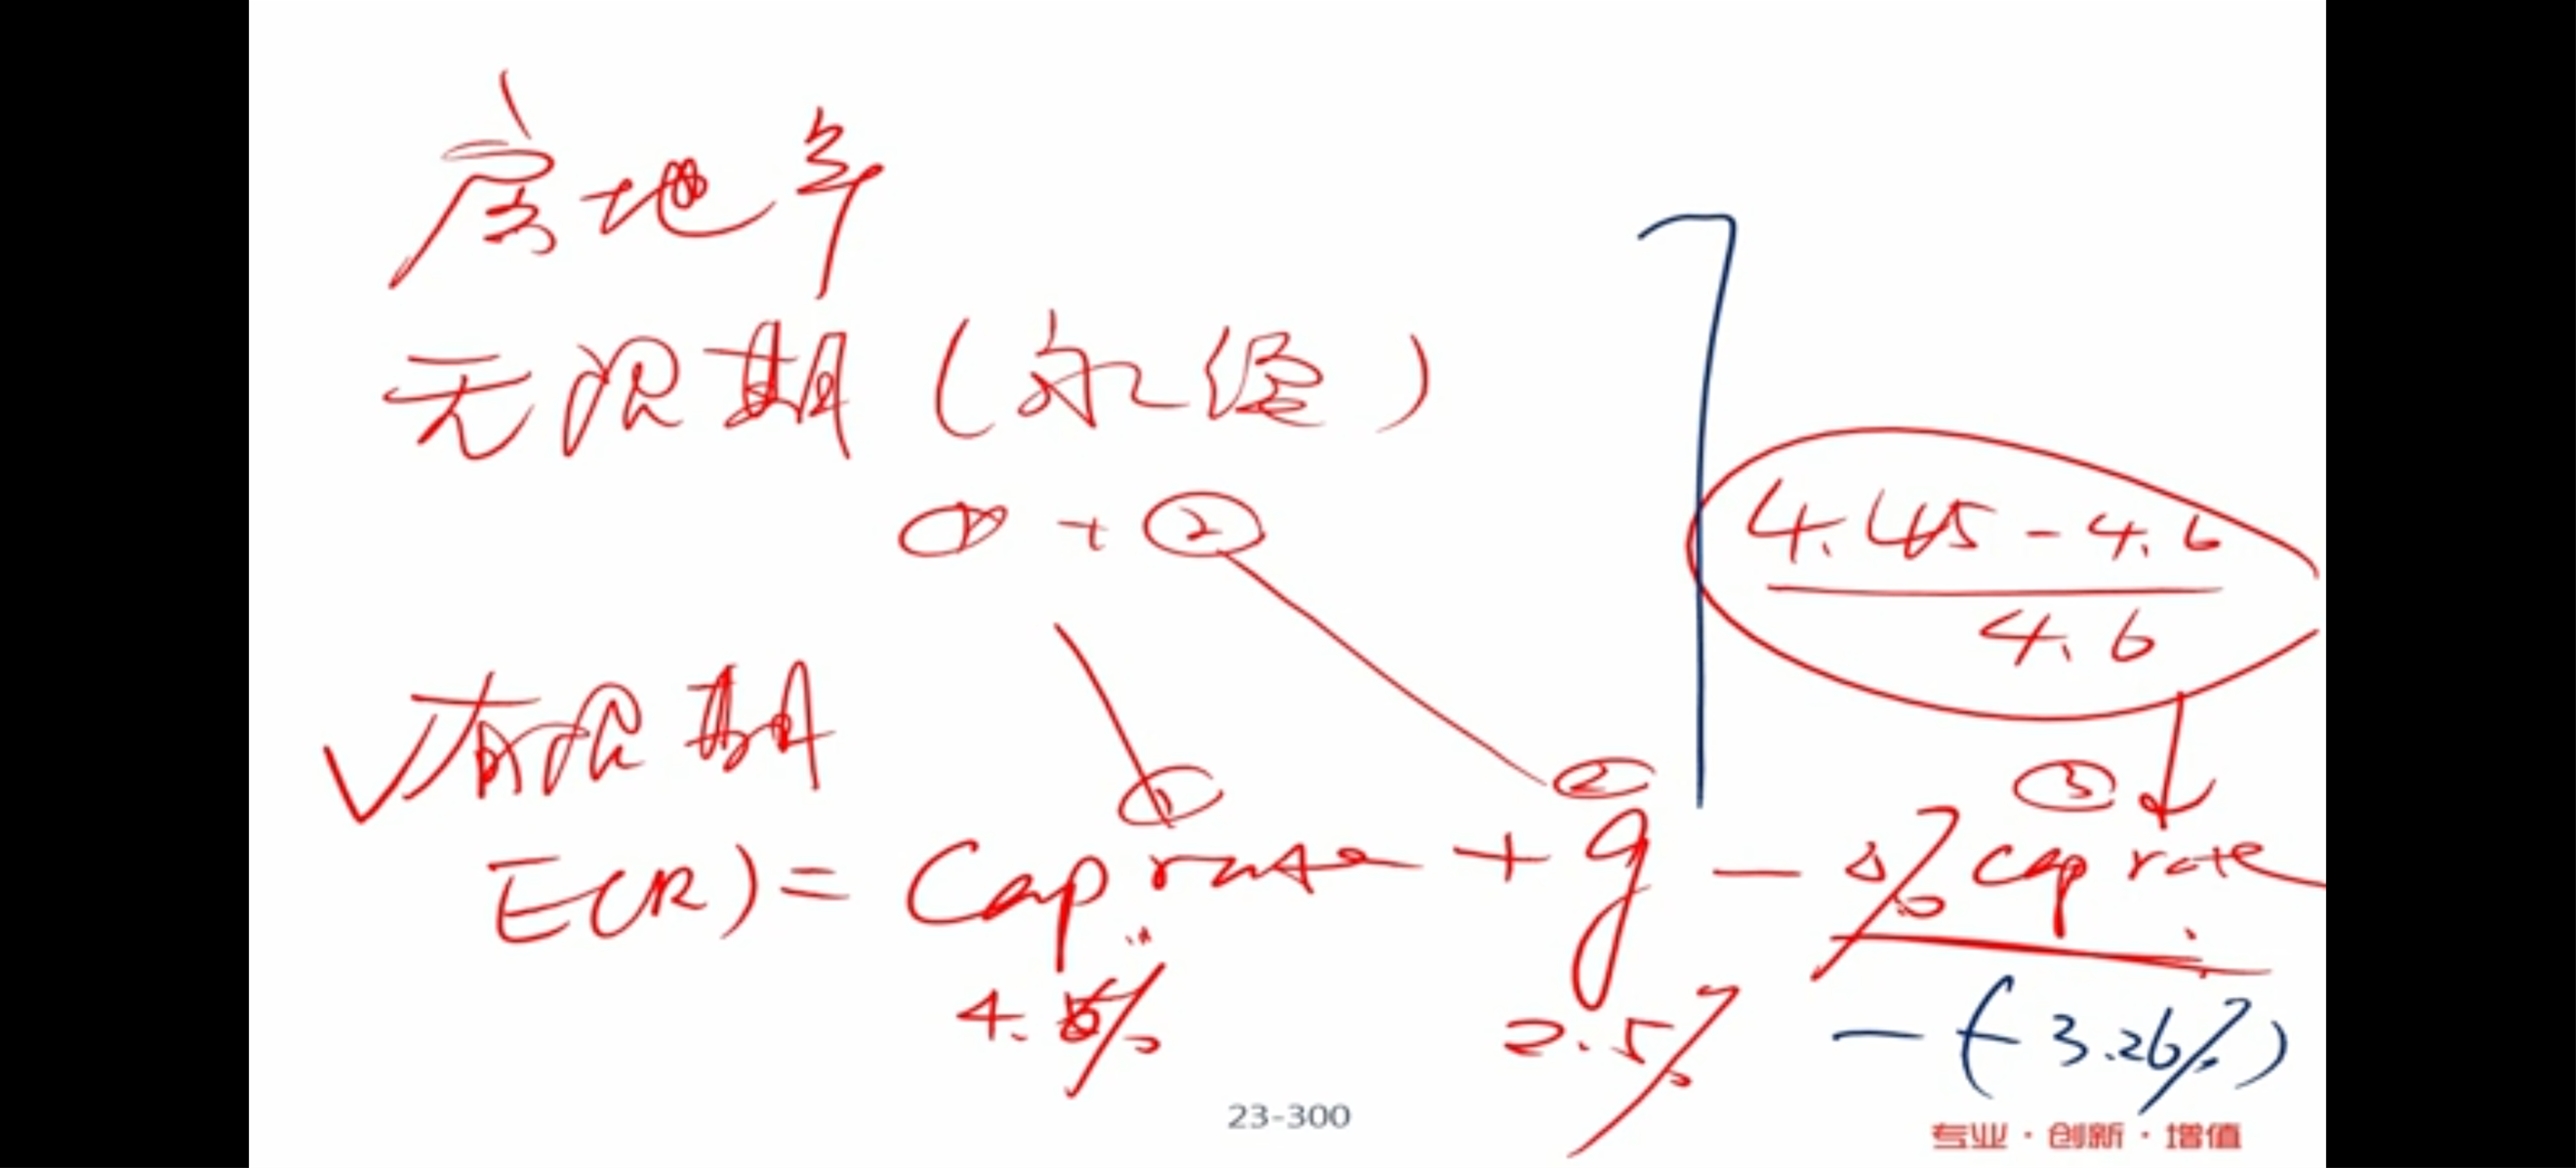 房地产
无限期(永续)
① + ②
4.45 - 4.6
4.6
√有限期
① ② ③
E(R) = Cap rate + g - Δ% cap rate
4.6% 2.5% -(-3.26%)
23-300
专业·创新·增值